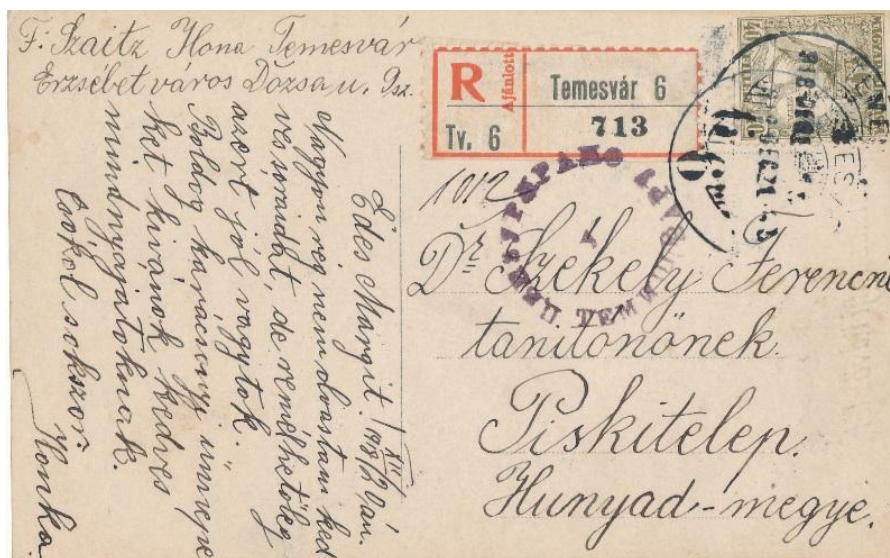 F: Szaitz Ilona Temesvár
Erzsébetváros Dózsa u. 9sz.
R
Ajánlott
Temesvár 6
713
Tv. 6
1012
Dr Székely Ferencné
tanitónőnek.
Piskitelep.
Hunyad-megye.
Édes Margit!
Nagyon rég nem olvastam ked
ves soraidat, de remélhetőleg
azért jól vagytok.
Boldog karácsonyi ünnepe
ket kivánok kedves
mindnyájatoknak.
Csókol sokszor:
Ilonka.